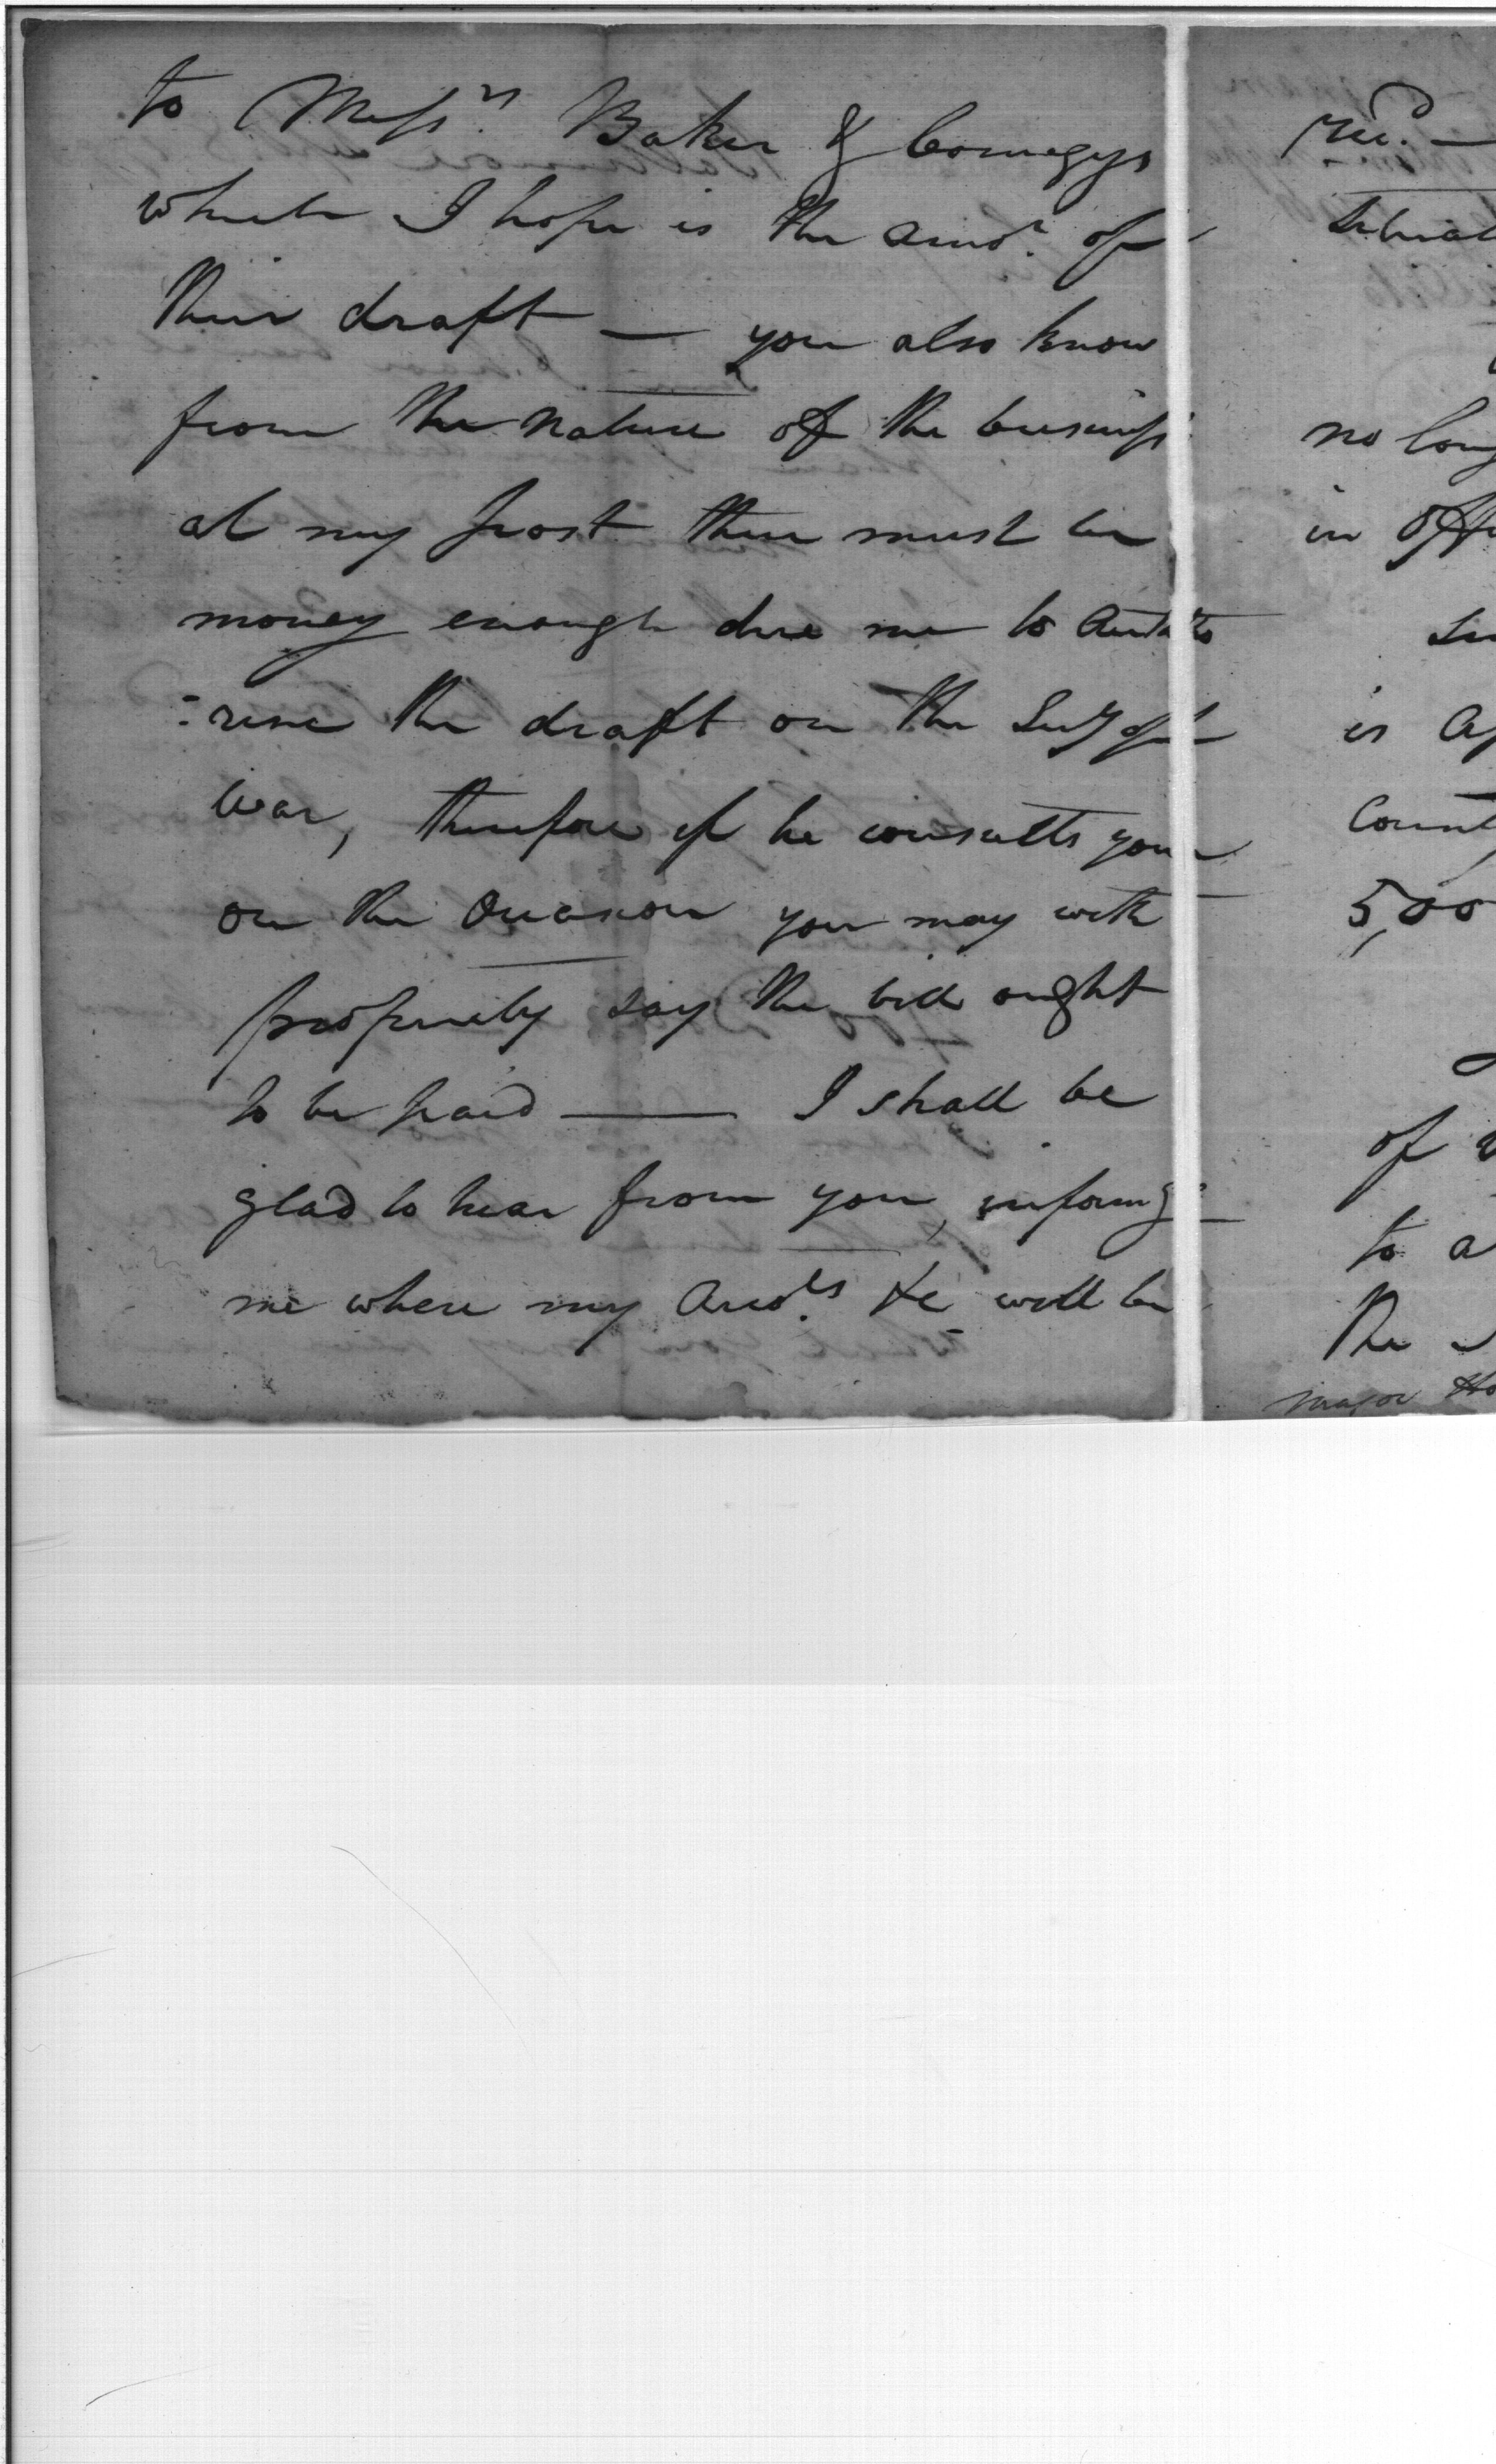 to Mess.rs Baker & Comegys
which I hope is the amo.t of
their draft — you also know
from the nature of the business
at my post there must be
money enough due me to autho
:rise the draft on the Secy of
War, therefore if he consults you
on the Occasion you may with
propriety say the bill ought
to be paid — I shall be
glad to hear from you, informg
me where my Acco.ts &c will be
rec.d —
no long
in Offi
is Ap
Count
5,00
of
to a
the
Major Ho